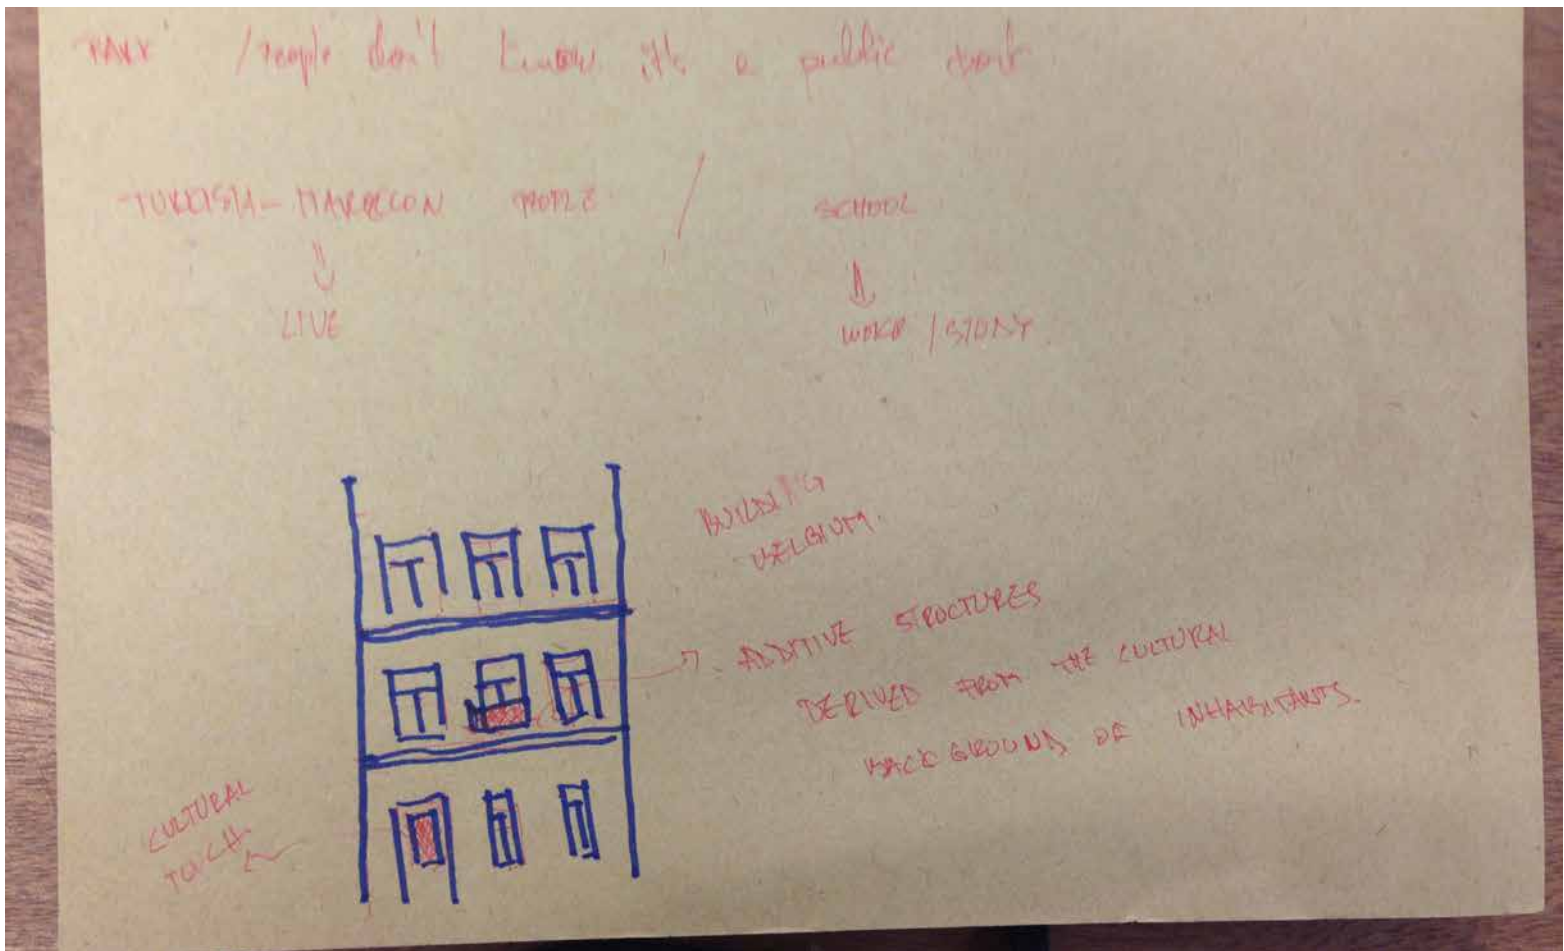 PARK / People don't know it's a public
TURKISH - MAROCCON PEOPLE / SCHOOL
LIVE
WORK / STUDY
BUILDING
BELGIUM.
ADDITIVE STRUCTURES
DERIVED FROM THE CULTURAL
BACKGROUND OF INHABITANTS.
CULTURAL
TOUCH